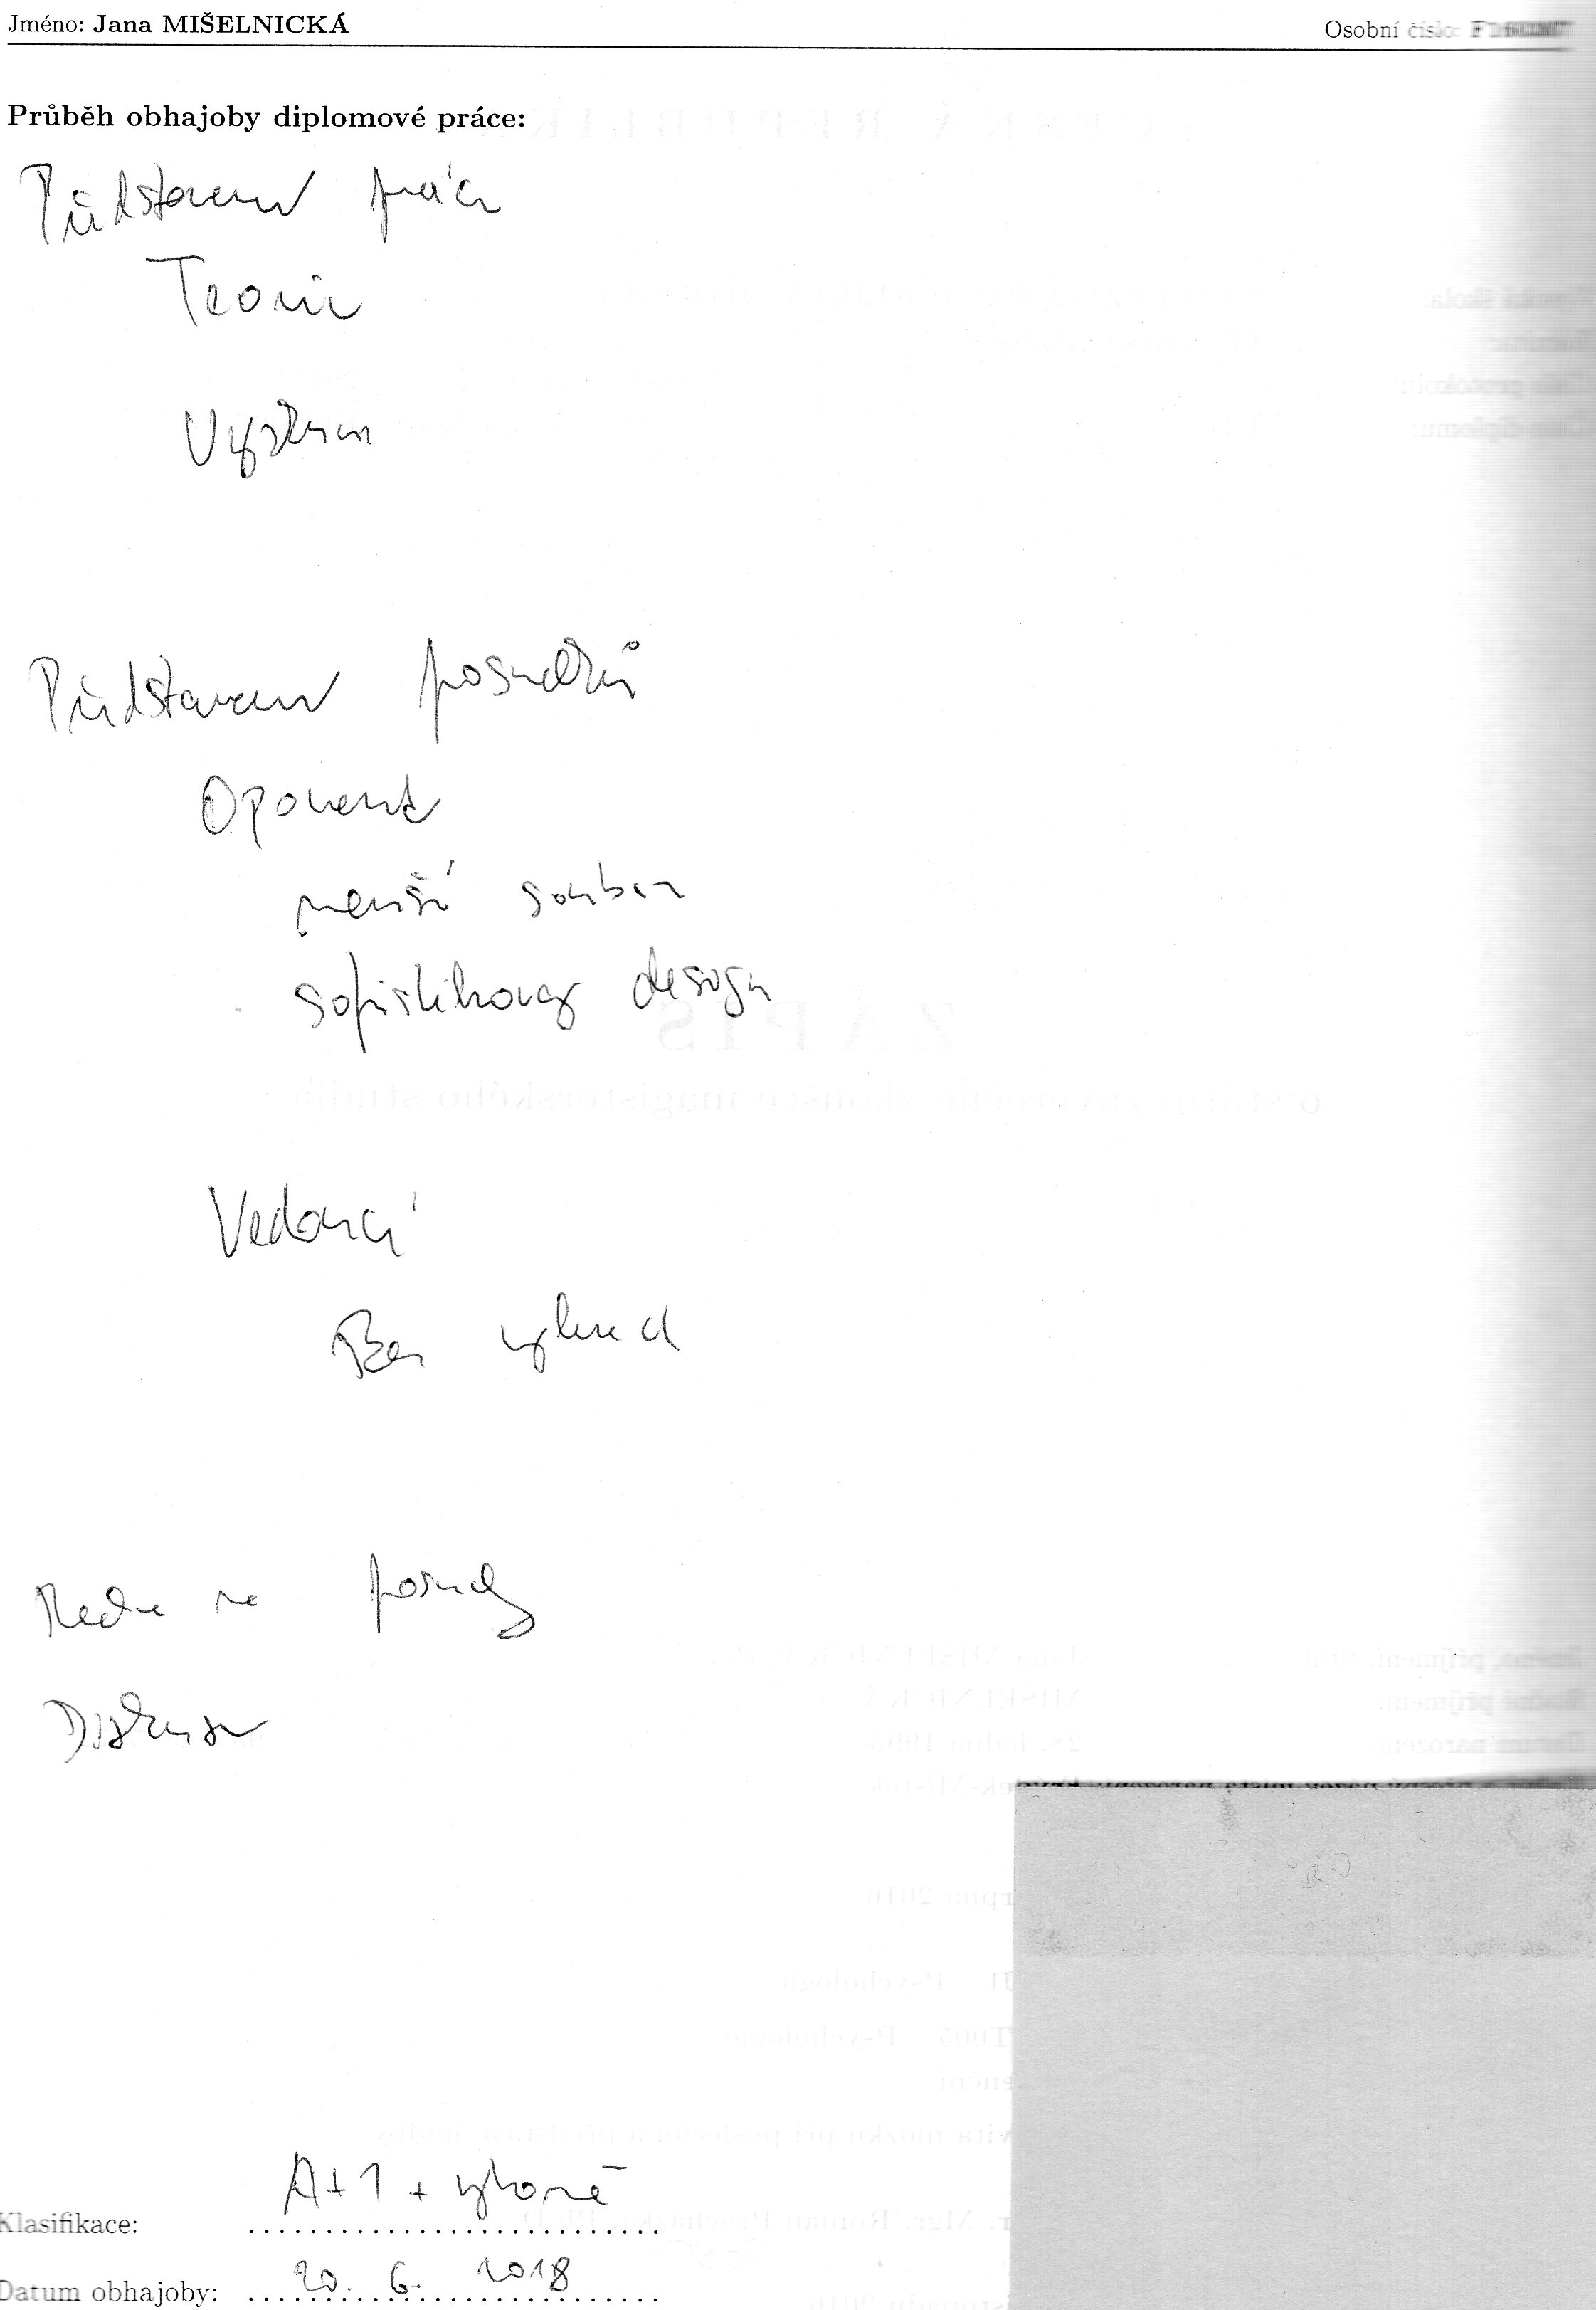 Jméno: Jana MIŠELNICKÁ Osobní číslo:
Průběh obhajoby diplomové práce:
Představení práce
Teorie
Výzkum
Představení posudků
Oponent
menší soubor
sofistikovaný design
Vedoucí
Bez výhrad
Reakce na posudky
Diskuse
A + 1 + výborně
Klasifikace:
20. 6. 2018
Datum obhajoby: